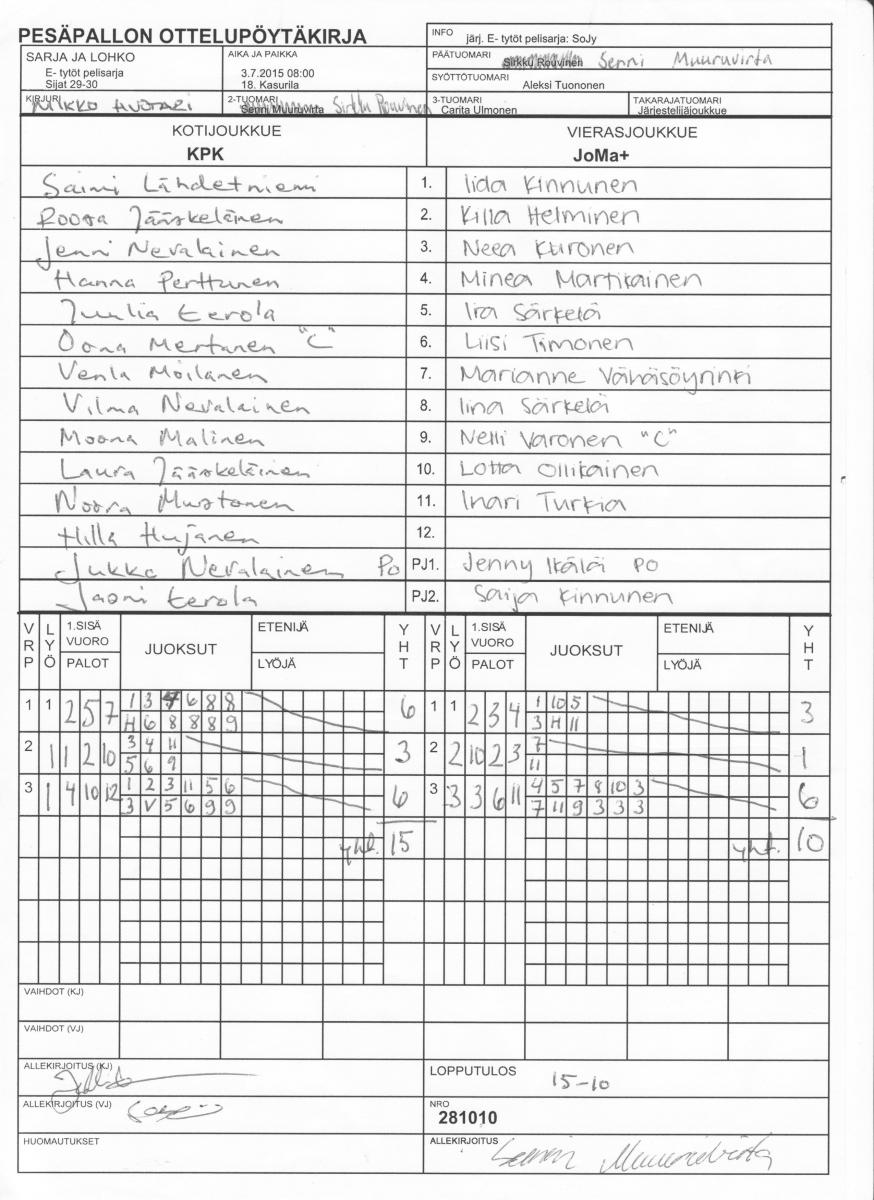 PESÄPALLON OTTELUPÖYTÄKIRJA
INFO järj. E- tytöt pelisarja: SoJy
SARJA JA LOHKO
E- tytöt pelisarja
Sijat 29-30
AIKA JA PAIKKA
3.7.2015 08:00
18. Kasurila
PÄÄTUOMARI Sirkku Rouvinen Senni Muuruvirta
SYÖTTÖTUOMARI
Aleksi Tuononen
KIRJURI
Mikko Huotari
2-TUOMARI
Senni Muuruvirta Sirkku Rouvinen
3-TUOMARI
Carita Ulmonen
TAKARAJATUOMARI
Järjestelijäjoukkue
KOTIJOUKKUE VIERASJOUKKUE
KPK JoMa+
Saimi Lähdetniemi 1. Iida Kinnunen
Roosa Jääskeläinen 2. Killa Helminen
Jenni Nevalainen 3. Neea Kuronen
Hanna Perttunen 4. Minea Martikainen
Juulia Eerola 5. Ira Särkelä
Oona Mertanen "C" 6. Liisi Timonen
Venla Moilanen 7. Marianne Vähäsöyrinki
Vilma Nevalainen 8. Iina Särkelä
Moona Malinen 9. Nelli Varonen "C"
Laura Jääskeläinen 10. Lotta Ollikainen
Noora Mustonen 11. Inari Turkia
Hilla Hujanen 12.
Jukka Nevalainen PO PJ1. Jenny Ikälä PO
Jaani Eerola PJ2. Saija Kinnunen
VRP LYÖ 1.SISÄ VUORO PALOT JUOKSUT ETENIJÄ LYÖJÄ YHT VRP LYÖ 1.SISÄ VUORO PALOT JUOKSUT ETENIJÄ LYÖJÄ YHT
1 1 2 5 7 1 3 4 6 8 8 6 1 1 2 3 4 1 10 5 3
H 6 8 8 8 9 3 H 11
2 1 1 2 10 3 4 11 3 2 2 10 2 3 7 1
5 6 9 11
3 1 4 10 12 1 2 3 11 5 6 6 3 3 3 6 11 4 5 7 8 10 3 6
3 V 5 6 9 9 7 11 9 3 3 3
yht. 15 yht. 10
VAIHDOT (KJ)
VAIHDOT (VJ)
ALLEKIRJOITUS (KJ)
LOPPUTULOS 15-10
ALLEKIRJOITUS (VJ)
NRO
281010
HUOMAUTUKSET
ALLEKIRJOITUS Senni Muuruvirta